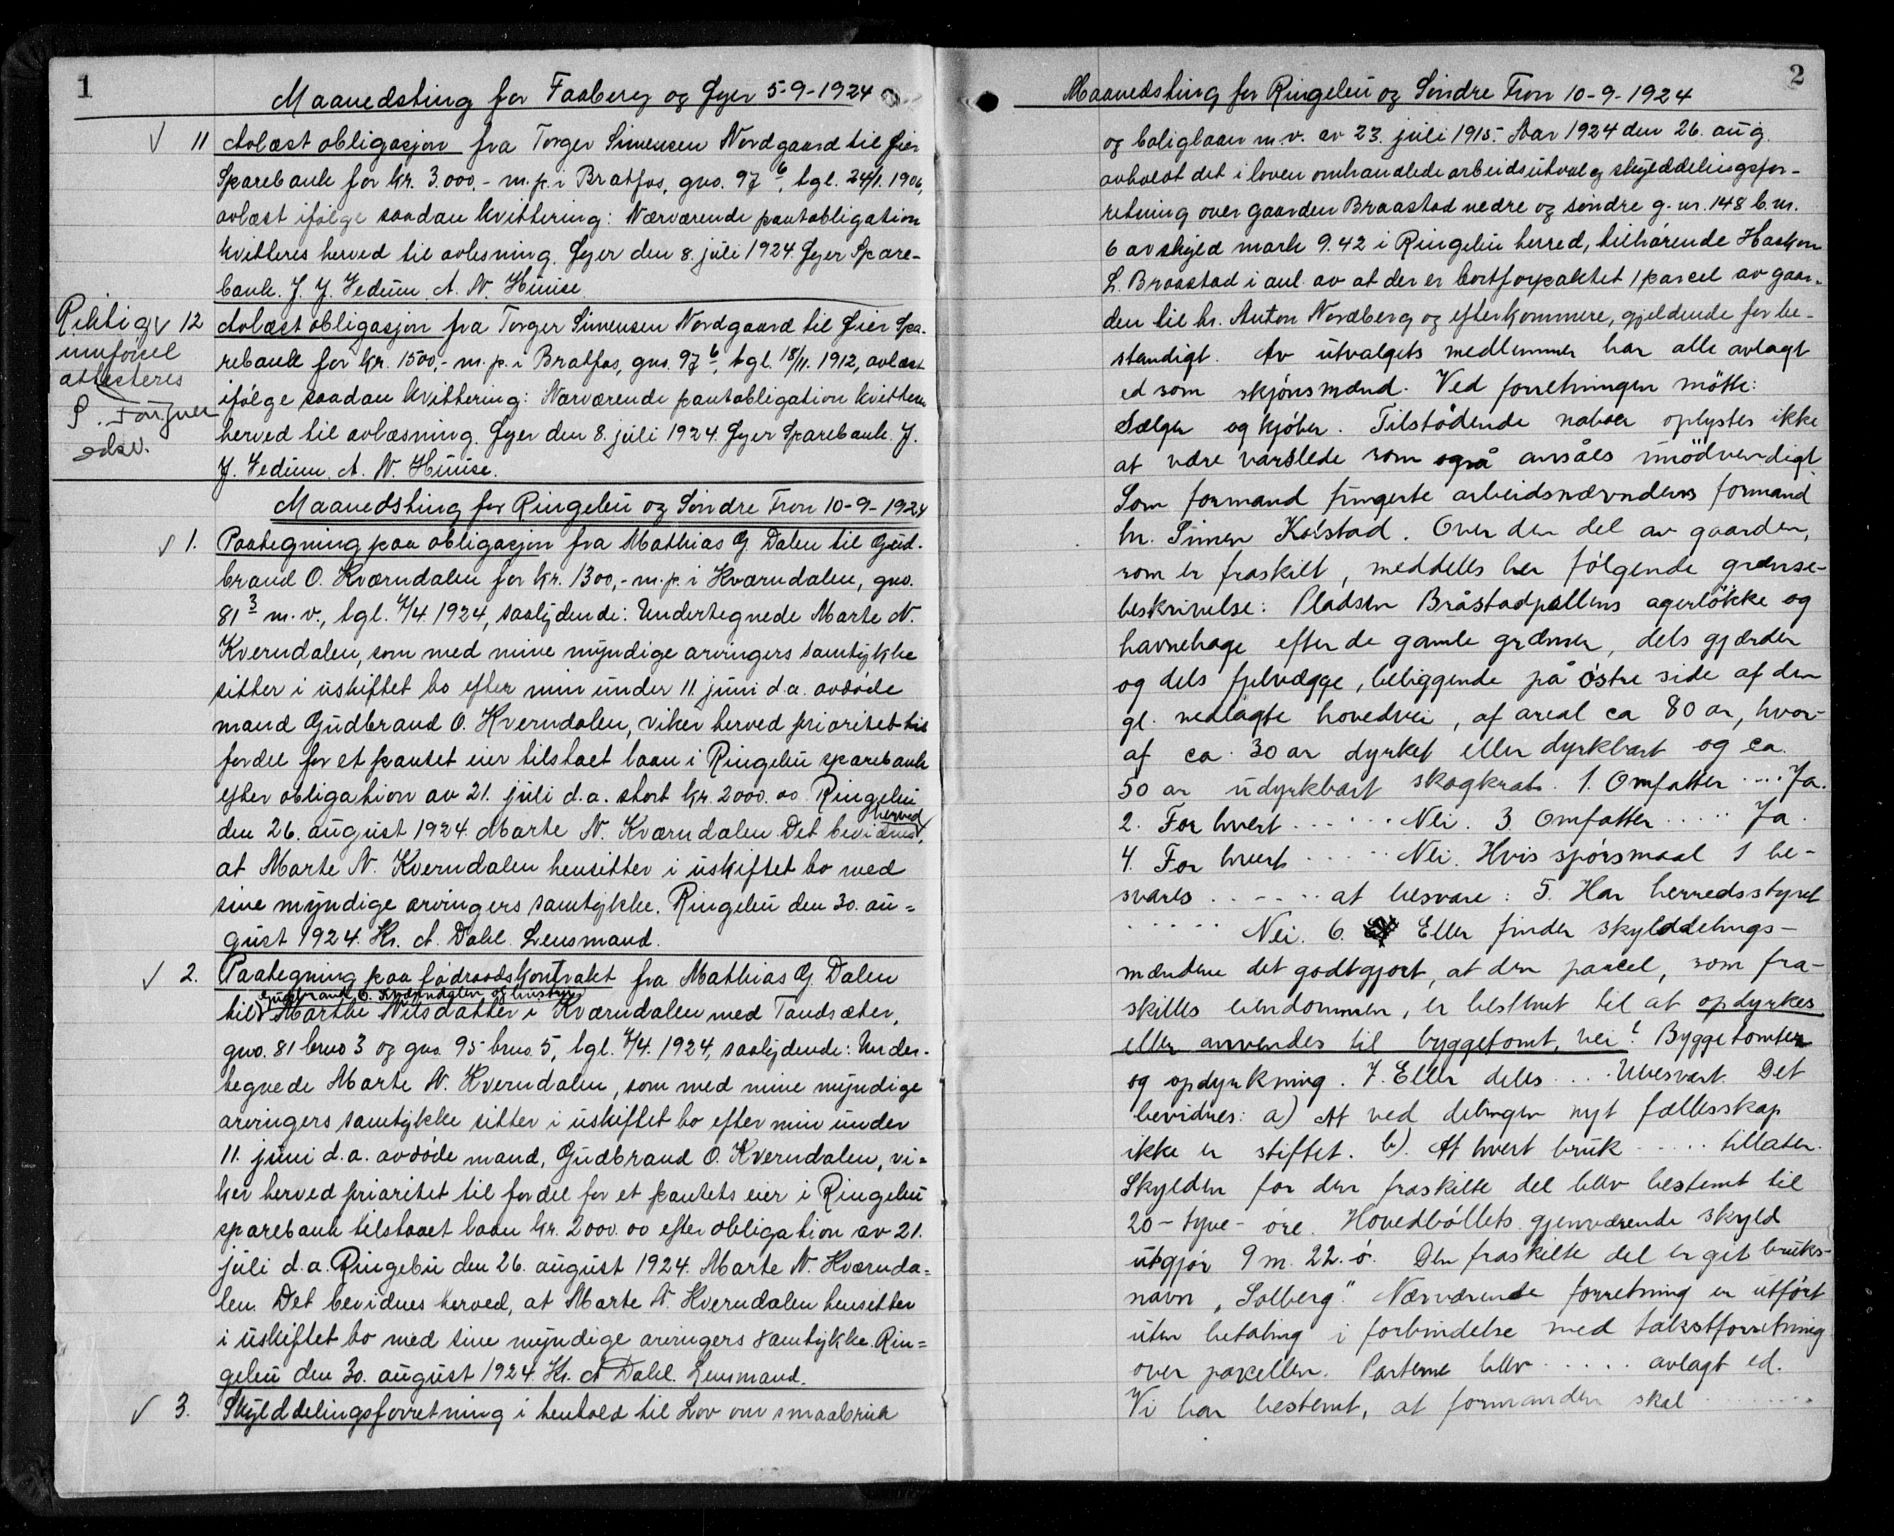 1
Maanedsting for Faaberg og Øyer 5-9-1924
✓ 11 Avlæst obligasjon fra Torger Simensen Nordgaard til Øier
Sparebank for kr. 3.000,- m.p. i Bratfos, gno. 97⁶, tgl. 24/1. 1906,
avlæst ifølge saadan kvittering: Nærværende pantobligation
kvitteres herved til avlesning. Øyer den 8. juli 1924. Øyer Spare-
bank. J. J. Jedum. A. N. Huuse.
✓ 12 Avlæst obligasjon fra Torger Simensen Nordgaard til Øier Spa-
rebank for kr. 1500,- m.p. i Bratfos, gno. 97⁶, tgl. 18/11. 1912, avlæst
ifølge saadan kvittering: Nærværende pantobligation kvitteres
herved til avlæsning. Øyer den 8. juli 1924. Øyer Sparebank. J.
J. Jedum. A. N. Huuse.
Riktig
innførsel
attesteres
Maanedsting for Ringebu og Søndre Fron 10-9-1924
✓ 1. Paategning paa obligasjon fra Mathias G. Dalen til Gud-
brand O. Kværndalen for kr. 1300,- m.p. i Kværndalen, gno.
81³ m.v., tgl. 7/4. 1924, saalydende: Undertegnede Marte N.
Kverndalen, som med mine myndige arvingers samtykke
sitter i uskiftet bo efter min under 11. juni d.a. avdøde
mand Gudbrand O. Kverndalen, viker herved prioritet til
fordel for et pantet eier tilstaet laan i Ringebu sparebank
efter obligation av 21. juli d.a. stort kr. 2000.00 Ringebu
den 26. august 1924. Marte N. Kværndalen. Det bevidnes herved,
at Marte N. Kverndalen hensitter i uskiftet bo med
sine myndige arvingers samtykke. Ringebu den 30. au=
gust 1924. Kr. A. Dahl. Lensmand.
✓ 2. Paategning paa födraadskontrakt fra Mathias G. Dalen
Gudbrand O. Kværndalen og hustru
til Marthe Nilsdatter i Kværndalen med Tandsæter,
gno. 81 bno 3 og gno. 95 bno. 5, tgl. 7/4. 1924, saalydende: Under-
tegnede Marte N. Kverndalen, som med mine myndige
arvingers samtykke sitter i uskiftet bo efter min under
11. juni d.a. avdøde mand, Gudbrand O. Kverndalen, vi=
ker herved prioritet til fordel for et pantets eier i Ringebu
sparebank tilstaaet laan kr. 2000.00 efter obligation av 21.
juli d.a. Ringebu den 26. august 1924. Marte N. Kværnda=
len. Det bevidnes herved, at Marte N. Kverndalen hensitter
i uskiftet bo med sine myndige arvingers samtykke. Rin=
gebu den 30. august 1924. Kr. A Dahl. Lensmand.
✓ 3. Skylddelingsforretning i henhold til Lov om smaabruk
2
Maanedsting for Ringebu og Søndre Fron 10-9-1924
og boliglaan m.v. av 23. juli 1915. Aar 1924 den 26. aug.
avholdt det i loven omhandlede arbeidsutvalg skylddelingsfor-
retning over gaarden Braastad nedre og søndre g.nr. 148 b.nr.
6 av skyld mark 9.42 i Ringebu herred, tilhørende Haakon
L. Braastad i anl. av at der er bortforpaktet 1 parcel av gaar-
den til hr. Anton Nordberg og efterkommere, gjeldende for be-
standigt. Av utvalgets medlemmer har alle avlagt
ed som skjønsmænd. Ved forretningen møtte:
Sælger og kjøber. Tilstødende naboer oplystes ikke
at være varslede som også ansåes unödvendigt.
Som formand fungerte arbeidsnævndens formand
hr. Simen Korstad. Over den del av gaarden,
som er fraskilt, meddeles her følgende grænse-
beskrivelse: Pladsen Bråstadpallens agerløkke og
havnehage efter de gamle grænser, dels gjærder
og dels fjelvægge, beliggende på østre side af den
gl. nedlagte hovedvei, af areal ca 80 ar, hvor-
af ca. 30 ar dyrket eller dyrkbart og ca.
50 ar udyrkbart skogkrat. 1. Omfatter .... Ja.
2. For hvert ...... Nei. 3 Omfatter ..... Ja.
4. For hvert ..... Nei. Hvis spörsmaal 1 be-
svares ..... at besvare: 5. Har herredsstyret
..... Nei. 6. Eller finder skylddelings-
mændene det godtgjort, at den parcel, som fra-
skilles eiendommen, er bestemt til at opdyrkes
eller anvendes til byggetomt, vei? Byggetomter
og opdyrkning. 7. Eller deles ... Ubesvart. Det
bevidnes: a) At ved delingen nyt fællesskap
ikke er stiftet. b). At hvert bruk ..... tillater.
Skylden for den fraskilte del blev bestemt til
20 - tyve - øre. Hovedbøllets gjenværende skyld
utgjør 9 m. 22. ø. Den fraskilte del er git bruks-
navn „Solberg." Nærværende forretning er utført
uten betaling i forbindelse med takstforretning
over parcellen. Parterne blev ..... avlagt ed.
Vi har bestemt, at formanden skal ........